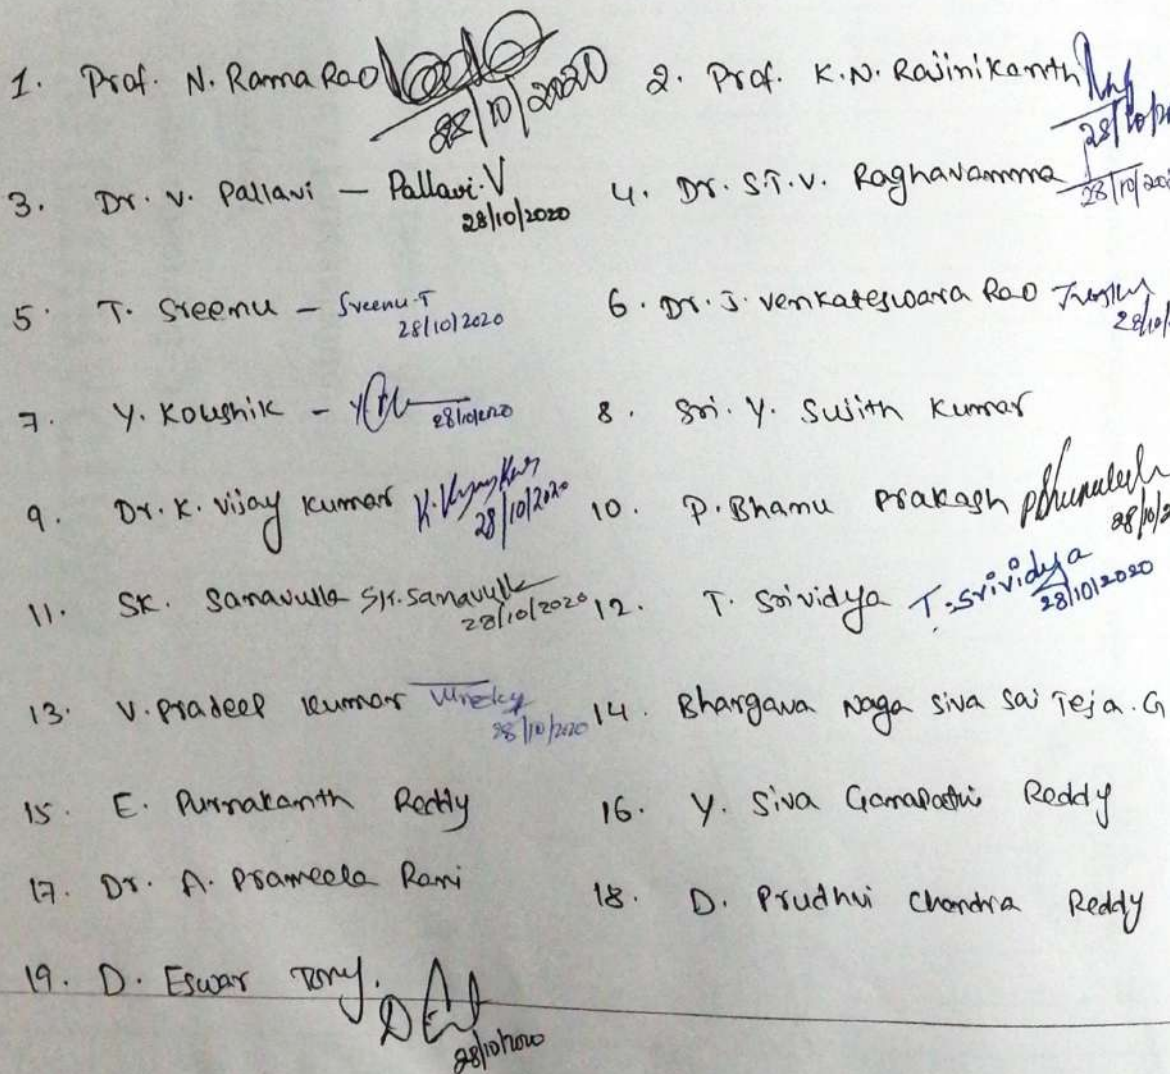 1. Prof. N. Rama Rao 28/10/2020 2. Prof. K.N. Rajinikanth
3. Dr. V. Pallavi – Pallavi.V 28/10/2020 4. Dr. S.T.V. Raghavamma
5. T. Sreenu – Sreenu.T 28/10/2020 6. Dr. J. Venkateswara Rao
7. Y. Koushik – 28/10/2020 8. Sri. Y. Sujith Kumar
9. Dr. K. Vijay Kumar K. Vijay Kumar 28/10/2020 10. P. Bhanu Prakash
11. SK. Sanavulla SK. Sanavulla 28/10/2020 12. T. Srividya T. Srividya 28/10/2020
13. V. Pradeep Kumar 28/10/2020 14. Bhargava Naga Siva Sai Teja. G
15. E. Purnakanth Reddy 16. Y. Siva Ganapathi Reddy
17. Dr. A. Prameela Rani 18. D. Prudhvi Chandra Reddy
19. D. Eswar Tony. 28/10/2020